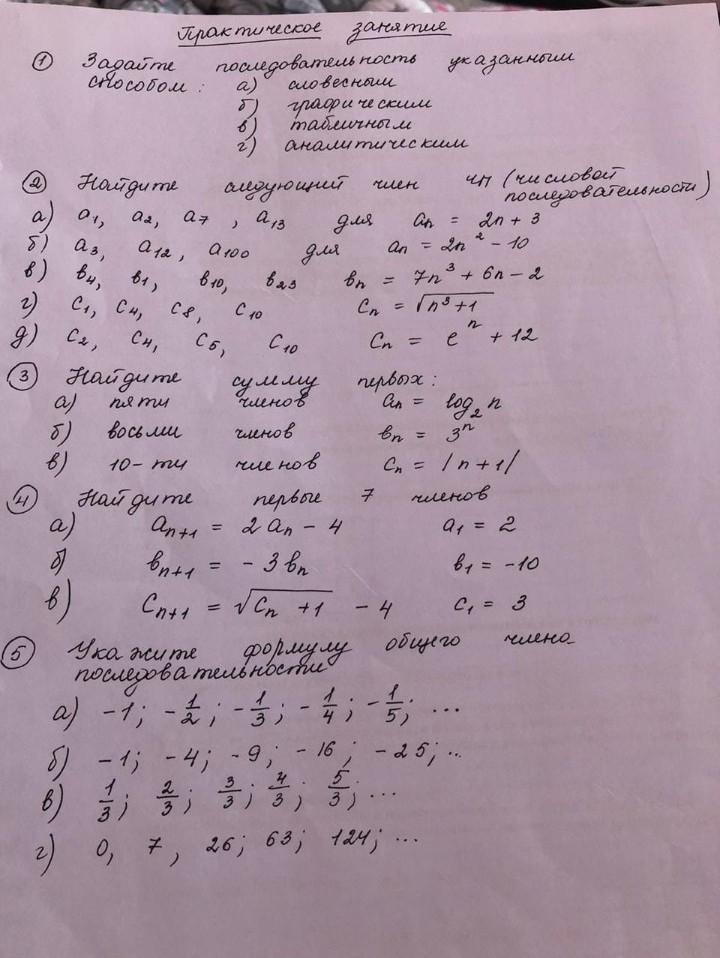 Практическое занятие
① Задайте последовательность указанным
способом: а) словесным
б) графическим
в) табличным
г) аналитическим
② Найдите следующий член ЧП (числовой
последовательности)
а) a₁, a₂, a₇, a₁₃ для aₙ = 2n + 3
б) a₃, a₁₂, a₁₀₀ для aₙ = 2n² - 10
в) b₄, b₁, b₁₀, b₂₃ bₙ = 7n³ + 6n - 2
г) c₁, c₄, c₈, c₁₀ cₙ = √(n³+1)
д) c₂, c₄, c₅, c₁₀ cₙ = eⁿ + 12
③ Найдите сумму первых:
а) пяти членов aₙ = log₂ n
б) восьми членов bₙ = 3ⁿ
в) 10-ти членов cₙ = |n+1|
④ Найдите первые 7 членов
а) aₙ₊₁ = 2aₙ - 4 a₁ = 2
б) bₙ₊₁ = -3bₙ b₁ = -10
в) cₙ₊₁ = √(cₙ + 1) - 4 c₁ = 3
⑤ Укажите формулу общего члена
последовательности
а) -1; -1/2; -1/3; -1/4; -1/5; ...
б) -1; -4; -9; -16; -25; ...
в) 1/3; 2/3; 3/3; 4/3; 5/3; ...
г) 0, 7, 26; 63; 124; ...